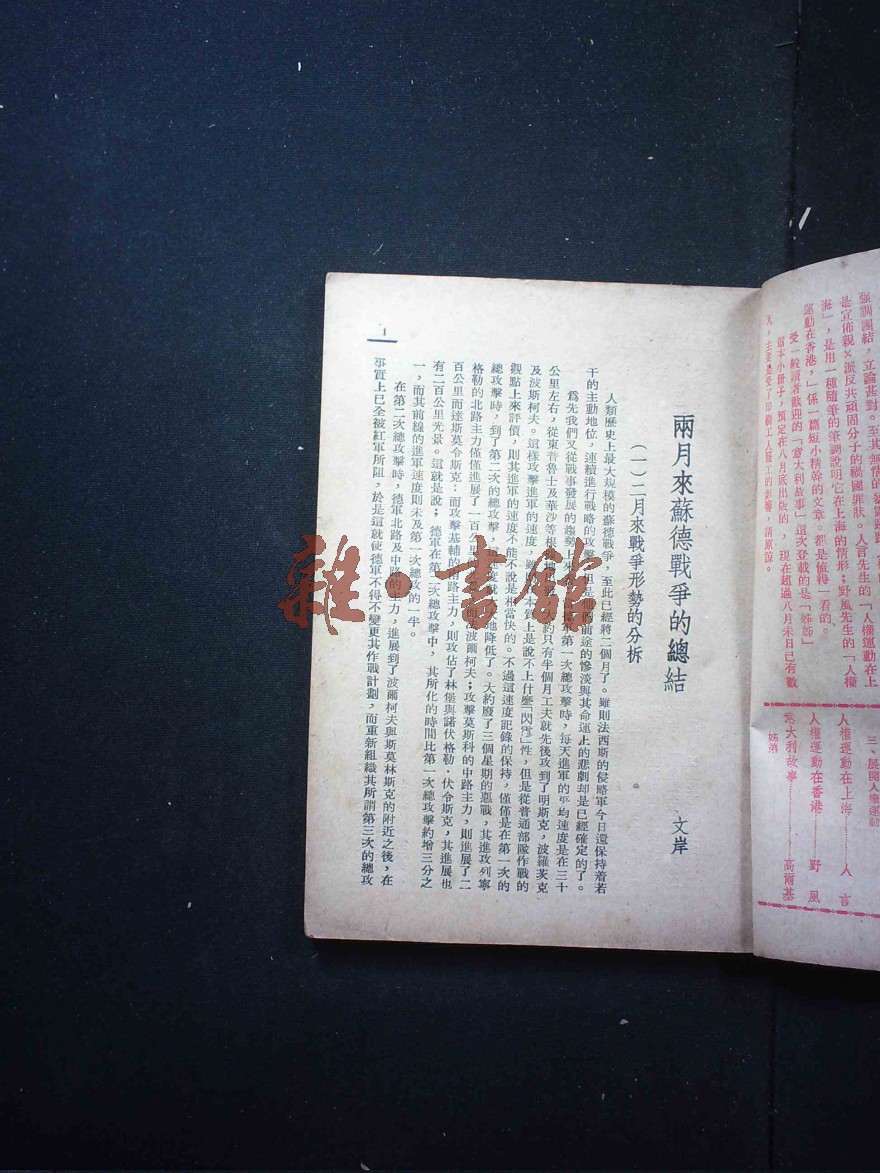 強調團結，立論甚對。至其無情的暴露
是宣佈親×派反共頑固分子的禍國罪狀。人言先生的「人權運動在上
海」，是用一種隨筆的筆調說明它在上海的情形；野風先生的「人權
運動在香港，」係一篇短小精幹的文章。都是値得一看的。
受一般讀者歡迎的「意大利故事」這次登載的是「姊姊」
這本小冊子，預定在八月底出版的，現在超過八月末日已有數
三、展開人權運動
人權運動在上海……人言
人權運動在香港……野風
意大利故事……高爾基
姊弟
兩月來蘇德戰爭的總結
文岸
（一）二月來戰爭形勢的分析
人類歷史上最大規模的蘇德戰爭，至此已經將二個月了。雖則法西斯的侵略軍今日還保持着若
干的主動地位，連續進行戰略的攻擊，但是前途的慘淡與其命運上的悲劇却是已經確定的了。
爲先我們又從戰事發展的趨勢上來第一次總攻擊時，每天進軍的平均速度是在三十
公里左右，從東普魯士及華沙等根只有半個月工夫就先後攻到了明斯克，波羅茨克
及波斯柯夫。這樣攻擊進軍的速度，雖本質上是說不上什麼「閃電」性，但是從普通部隊作戰的
觀點上來評價，則其進軍的速度不能不說是相當快的。不過這速度記錄的保持，僅僅是在第一次的
總攻擊時，到了第二次的總攻擊，速度就地降低了。大約廢了三個星期的惡戰，其進攻列寧
格勒的北路主力僅僅進展了一百公里波爾柯夫；攻擊莫斯科的中路主力，則進展了二
百公里而達斯莫令斯克；而攻擊基輔的南路主力，則攻佔了林堡與諾伏格勒·伏令斯克，其進展也
有二百公里光景。這就是說；德軍在第二次總攻擊中，其所化的時間比第一次總攻擊約增三分之
一，而其前線的進軍速度則未及第一次總攻的一半。
在第二次總攻擊時，德軍北路及中路的主力，進展到了波爾柯夫與斯莫林斯克的附近之後，在
事實上已全被紅軍所阻，於是這就使德軍不得不變更其作戰計劃，而重新組織其所謂第三次的總攻
1
雜·書館